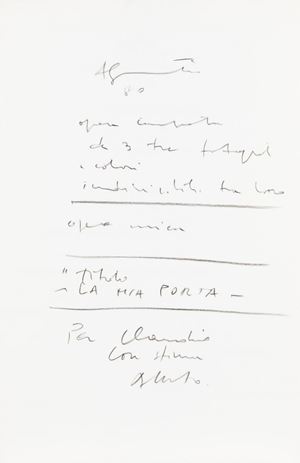 80
opera composta
da 3 tre fotograf
a colori
indivisibili tra loro
opera unica
" titolo
- LA MIA PORTA -
Per Claudio
con stima